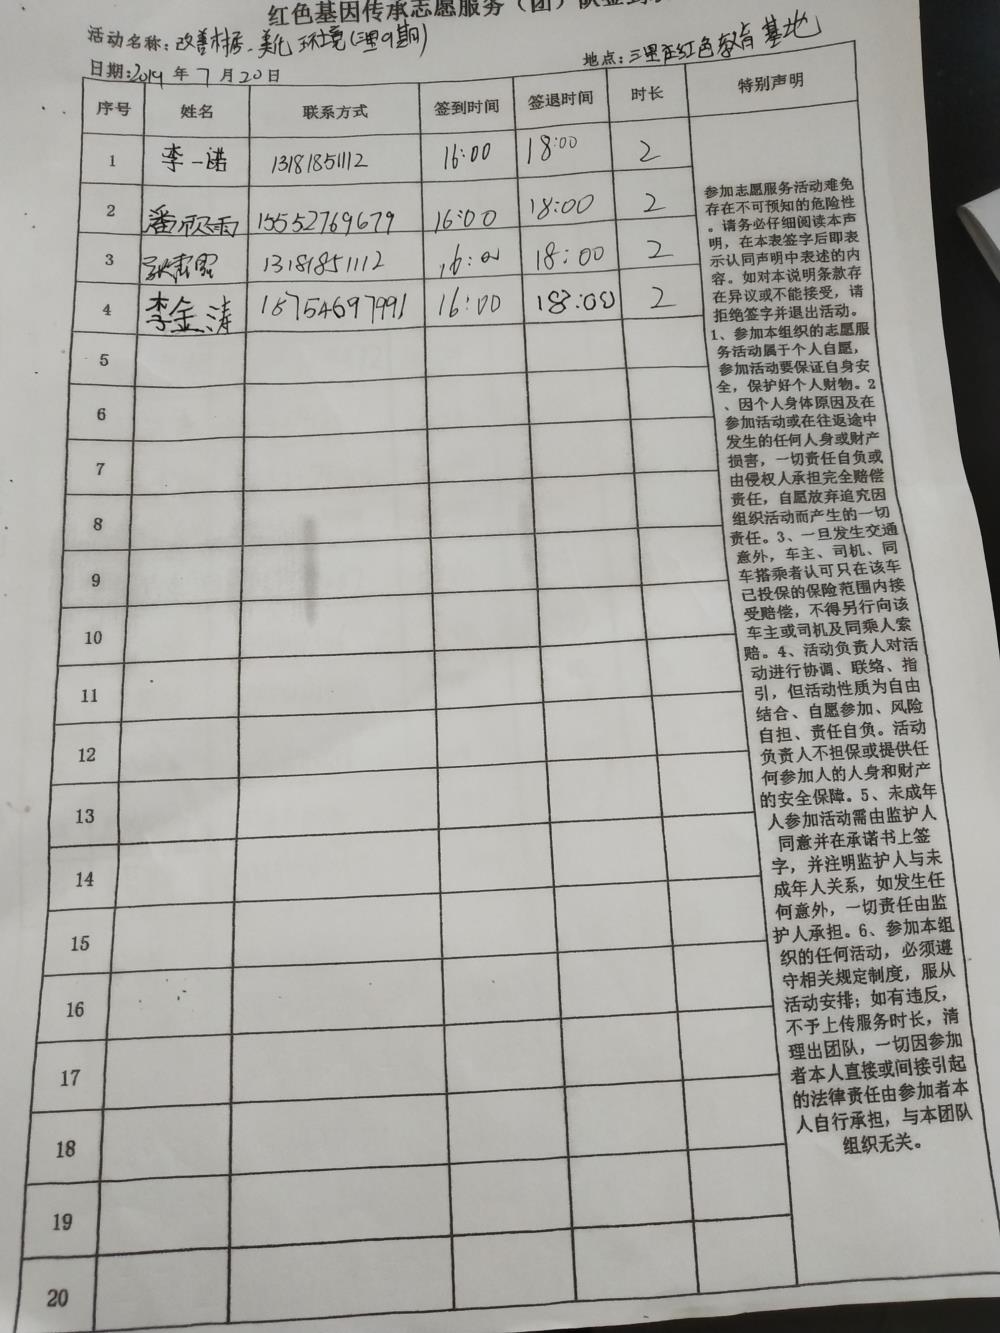 红色基因传承志愿服务（团）队签到
活动名称：改善村居、美化环境（三里9期）
日期：2019年7月20日 地点：三里庄红色教育基地
序号 姓名 联系方式 签到时间 签退时间 时长 特别声明
1 李一诺 13181851112 16:00 18:00 2
2 潘雨 15552769679 16:00 18:00 2
3 13181851112 16:00 18:00 2
4 李金涛 18754697991 16:00 18:00 2
5
6
7
8
9
10
11
12
13
14
15
16
17
18
19
20
参加志愿服务活动难免
存在不可预知的危险性
。请务必仔细阅读本声
明，在本表签字后即表
示认同声明中表述的内
容。如对本说明条款存
在异议或不能接受，请
拒绝签字并退出活动。
1、参加本组织的志愿服
务活动属于个人自愿，
参加活动要保证自身安
全，保护好个人财物。2
、因个人身体原因及在
参加活动或在往返途中
发生的任何人身或财产
损害，一切责任自负或
由侵权人承担完全赔偿
责任，自愿放弃追究因
组织活动而产生的一切
责任。3、一旦发生交通
意外，车主、司机、同
车搭乘者认可只在该车
已投保的保险范围内接
受赔偿，不得另行向该
车主或司机及同乘人索
赔。4、活动负责人对活
动进行协调、联络、指
引，但活动性质为自由
结合、自愿参加、风险
自担、责任自负。活动
负责人不担保或提供任
何参加人的人身和财产
的安全保障。5、未成年
人参加活动需由监护人
同意并在承诺书上签
字，并注明监护人与未
成年人关系，如发生任
何意外，一切责任由监
护人承担。6、参加本组
织的任何活动，必须遵
守相关规定制度，服从
活动安排；如有违反，
不予上传服务时长，清
理出团队，一切因参加
者本人直接或间接引起
的法律责任由参加者本
人自行承担，与本团队
组织无关。